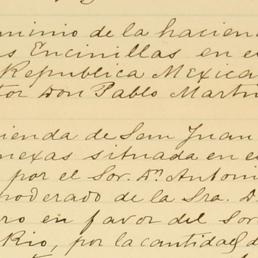 minio de la hacien
s Encinillas en e
Republica Mexica
tor Don Pablo Martin
ienda de San Juan
nexas situada en e
por el Sor. Dn. Antoni
poderado de la Sra. D
ro en favor del Sor
Rio, por la cantidad d